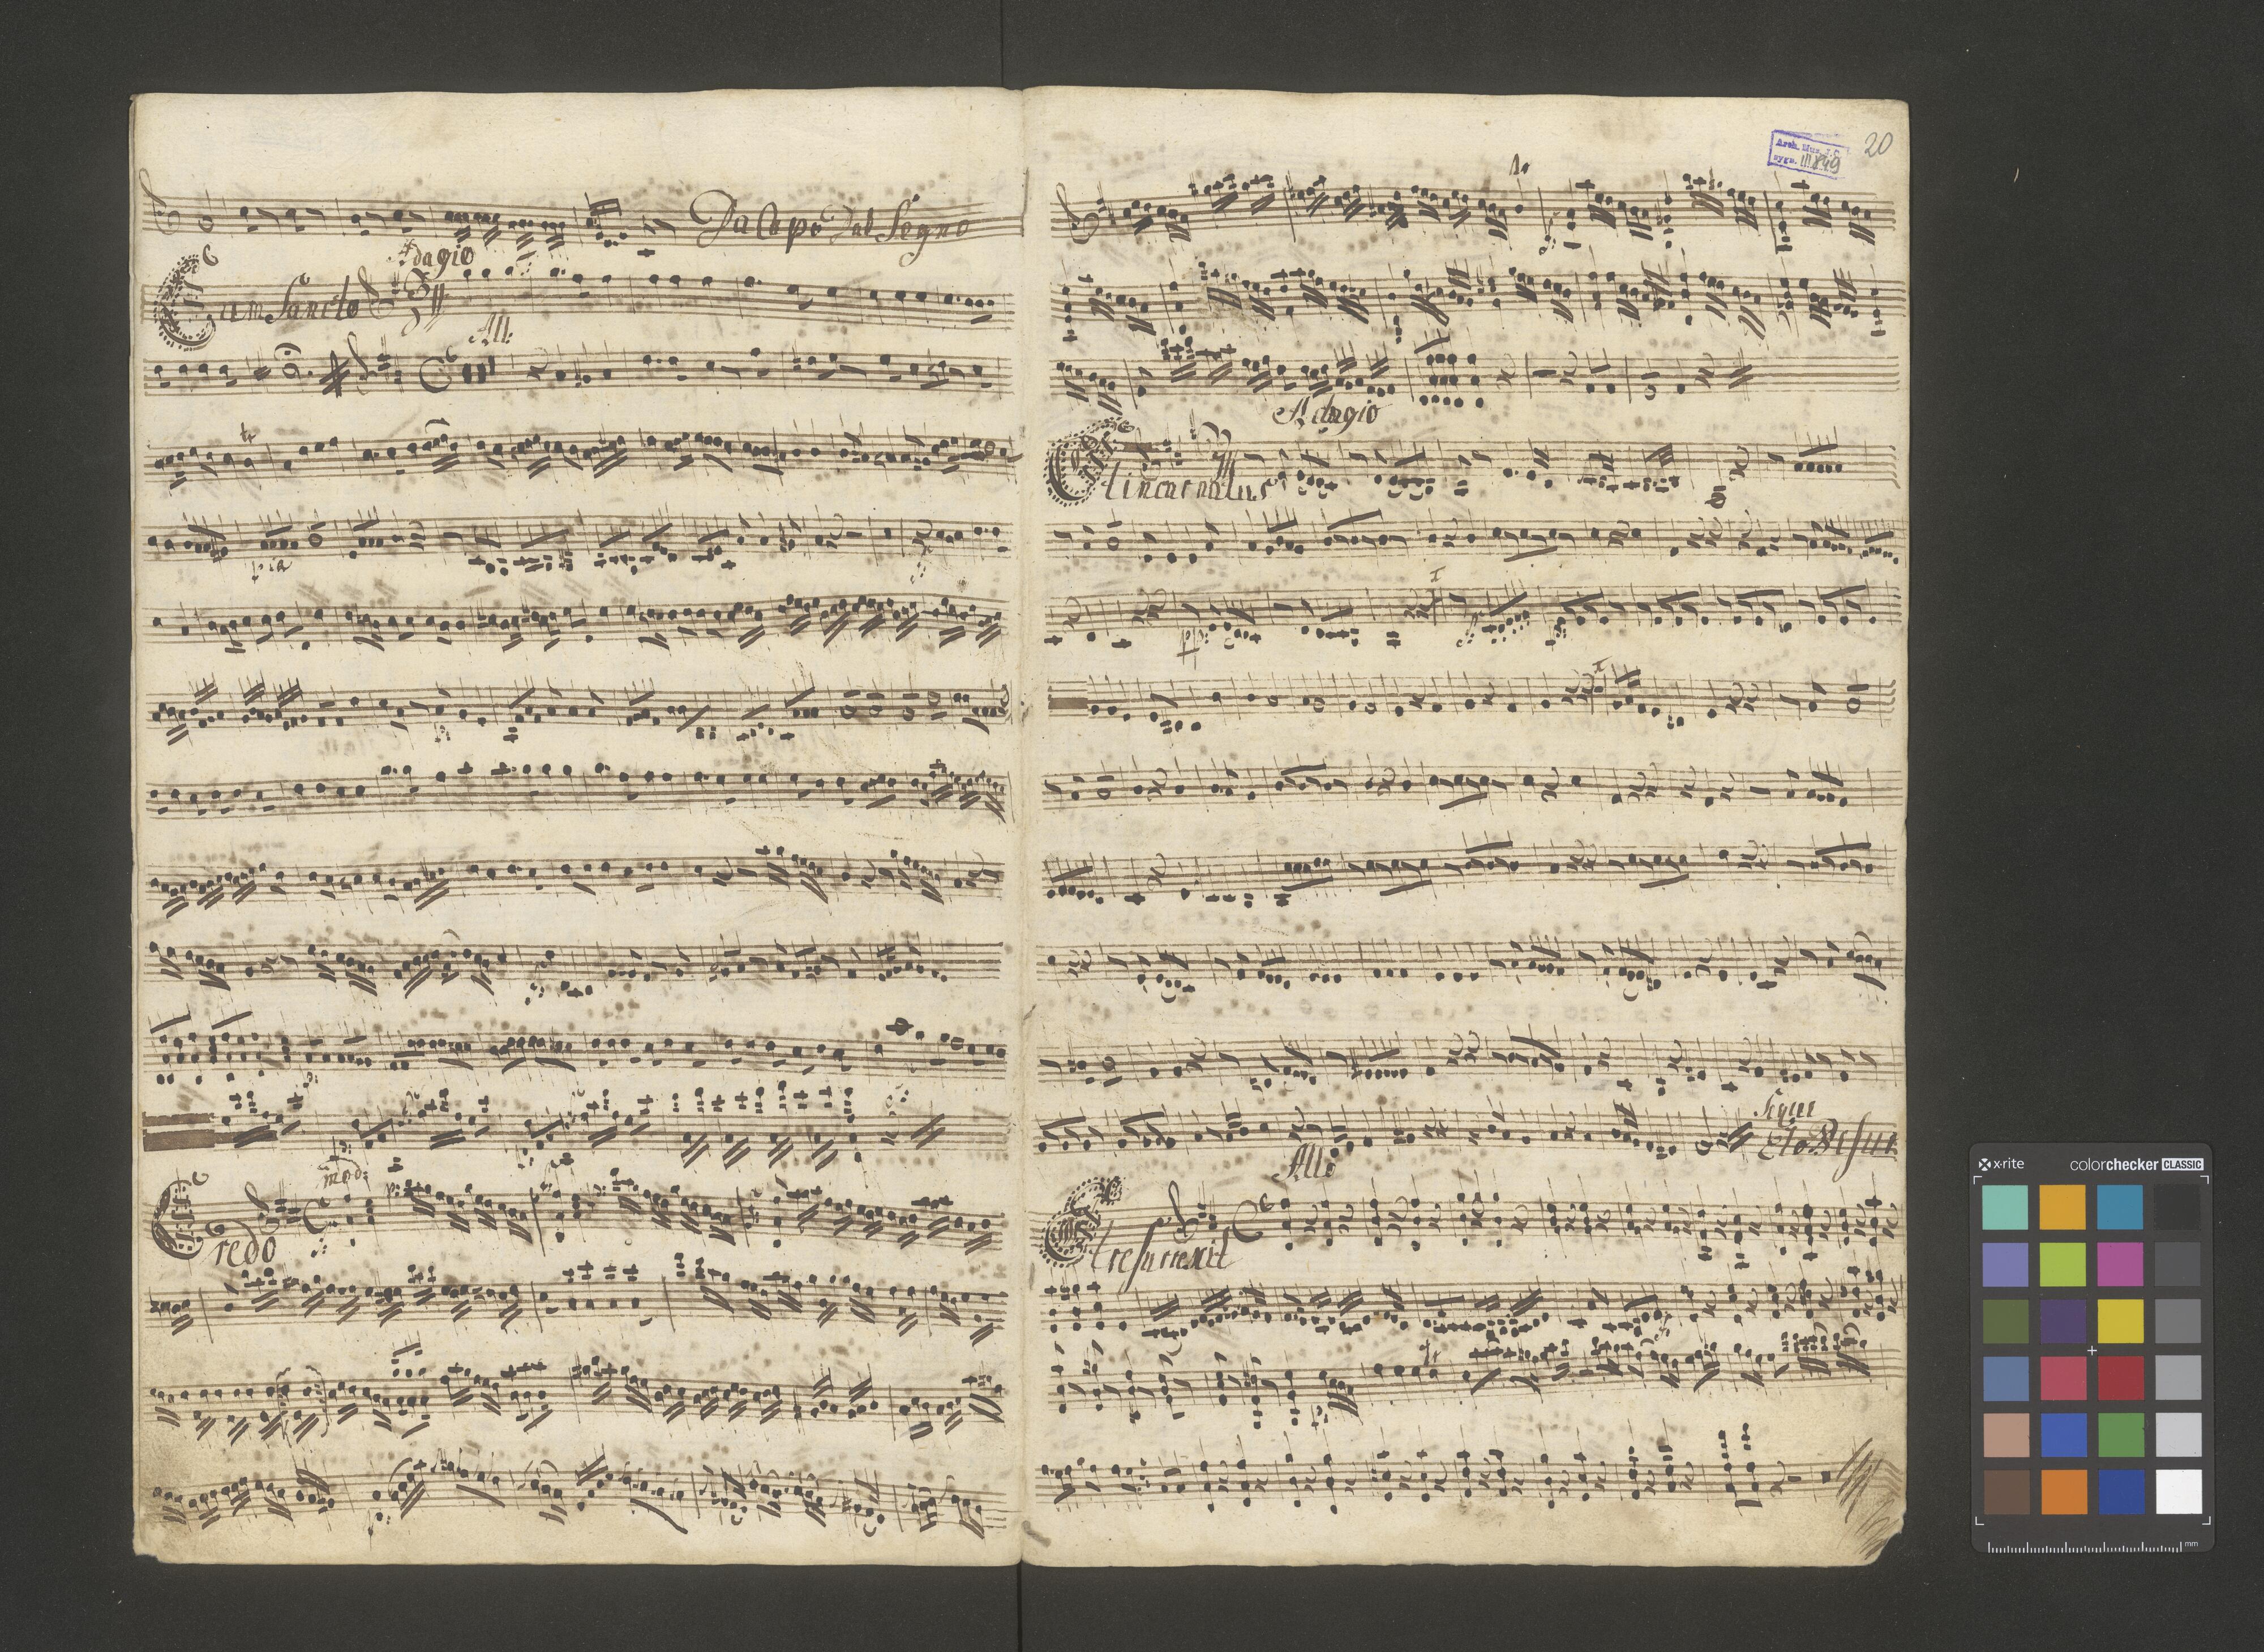 Da Capo Dal Segno
Adagio
Cum Sancto
All:
tr
pia
mod:
Credo
Arch. Mus. J.G.
sygn. III
20
Adagio
Et incarnatus
pp:
Segue
All:
Et resurrexit
tr
x-rite
colorchecker CLASSIC
mm